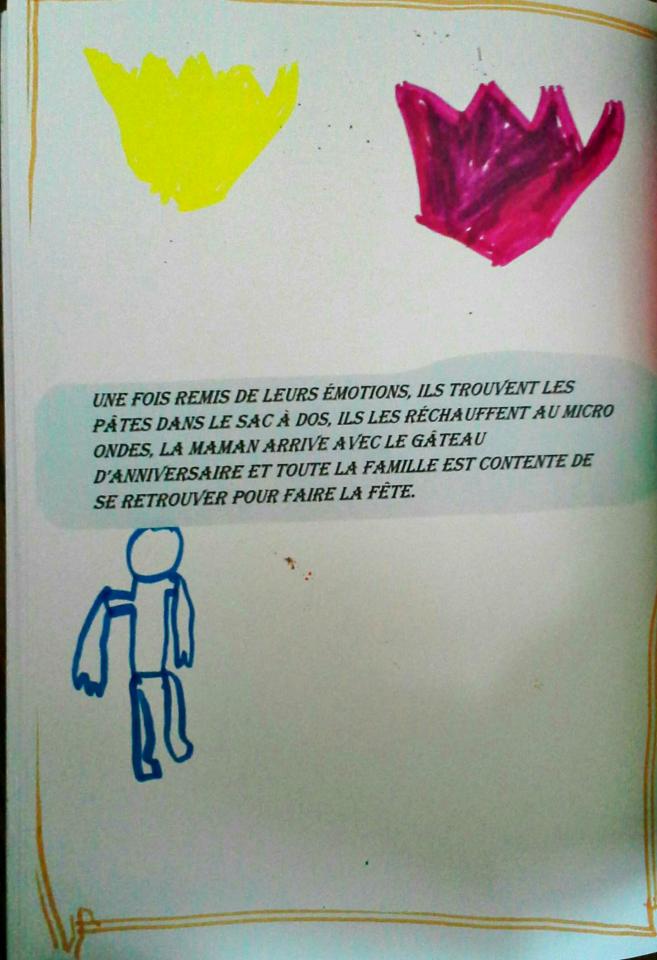 UNE FOIS REMIS DE LEURS ÉMOTIONS, ILS TROUVENT LES
PÂTES DANS LE SAC À DOS, ILS LES RÉCHAUFFENT AU MICRO
ONDES, LA MAMAN ARRIVE AVEC LE GÂTEAU
D'ANNIVERSAIRE ET TOUTE LA FAMILLE EST CONTENTE DE
SE RETROUVER POUR FAIRE LA FÊTE.